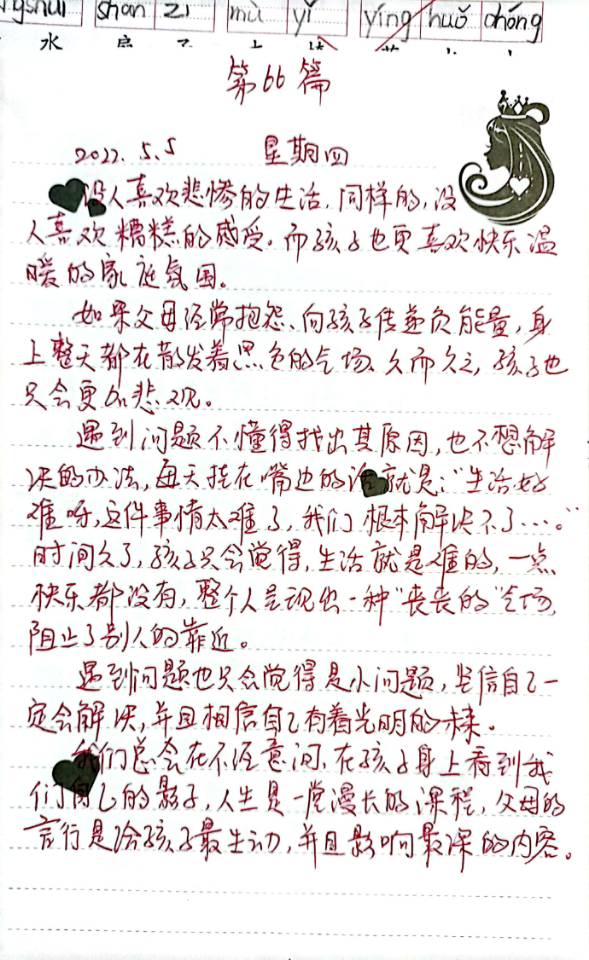 shan zi mù yǐ yíng huǒ chóng
水
第66篇
2022.5.5 星期四
没人喜欢悲惨的生活，同样的，没
人喜欢糟糕的感受。而孩子也更喜欢快乐温
暖的家庭氛围。
如果父母经常抱怨、向孩子传递负能量，身
上整天都在散发着黑色的气场、久而久之，孩子也
只会更加悲观。
遇到问题不懂得找出其原因，也不想解
决的办法，每天挂在嘴边的话就是："生活好
难呀，这件事情太难了，我们根本解决不了…。"
时间久了，孩子只会觉得，生活就是难的，一点
快乐都没有，整个人呈现出一种"丧丧的"气场，
阻止了别人的靠近。
遇到问题也只会觉得是小问题，坚信自己一
定会解决，并且相信自己有着光明的未来。
我们总会在不经意间、在孩子身上看到我
们自己的影子，人生是一堂漫长的课程，父母的
言行是给孩子最生动，并且影响最深的内容。